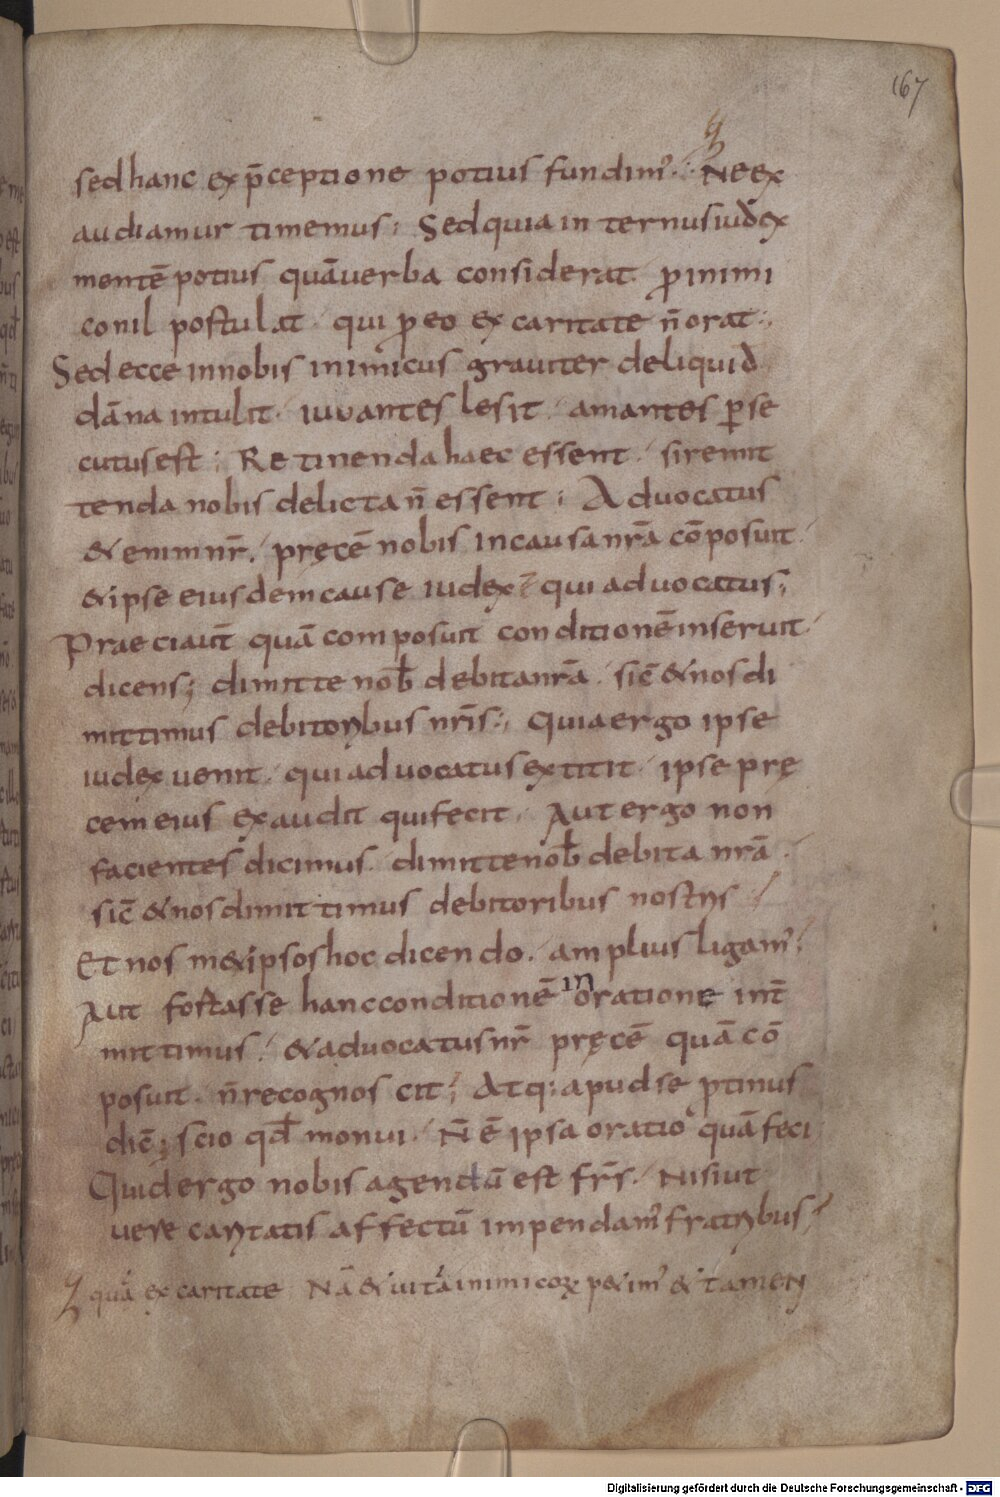 167
sed hanc ex p̄ceptione potius fundim᾽. Ne ex
audiamur timemus; Sed quia in ternus iudex
mentē potius quā verba considerat ꝓ inimi
co nil postulat qui ꝓ eo ex caritate n̄ orat;
Sed ecce in nobis inimicus grauiter deliquid
dāna intulit. iuvantes lesit. amantes ꝑse
cutus est; Retinenda haec essent. si remit
tenda nobis delicta n̄ essent; Aduocatus
& enim nr̄. p̄ęcē nobis in causa nrā cōposuit
& ipse eiusdem cause iudex ē qui aduocatus;
Praeci aut̄ quā composuit conditionē inseruit
dicens; dimitte nob̄ debita nrā. sic̄ & nos di
mittimus debitoribus nrīs; Quia ergo ipse
iudex uenit. qui aduocatus extitit. ipse prę
cem eius exaudit qui fecit. Aut ergo non
facientes dicimus. dimitte nob̄ debita nrā.
sic̄ & nos dimittimus debitoribus nostris
Et nos m&ipsos hoc dicendo. amplius ligam᾽;
Aut fortasse hanc conditionē in oratione int̄
mittimus. & aduocatus nr̄ pręcē quā cō
posuit. n̄ recognoscit; Atq; apud se ꝓtinus
dic̄; scio qd̄ monui. N̄ ē ipsa oratio quā feci
Quid ergo nobis agendū est fr̄s. Nisi ut
uere caritatis affectū impendam᾽ fratribus;
quā ex caritate Nā & uitā inimicoꝝ p&im᾽ & tamen
Digitalisierung gefördert durch die Deutsche Forschungsgemeinschaft - DFG